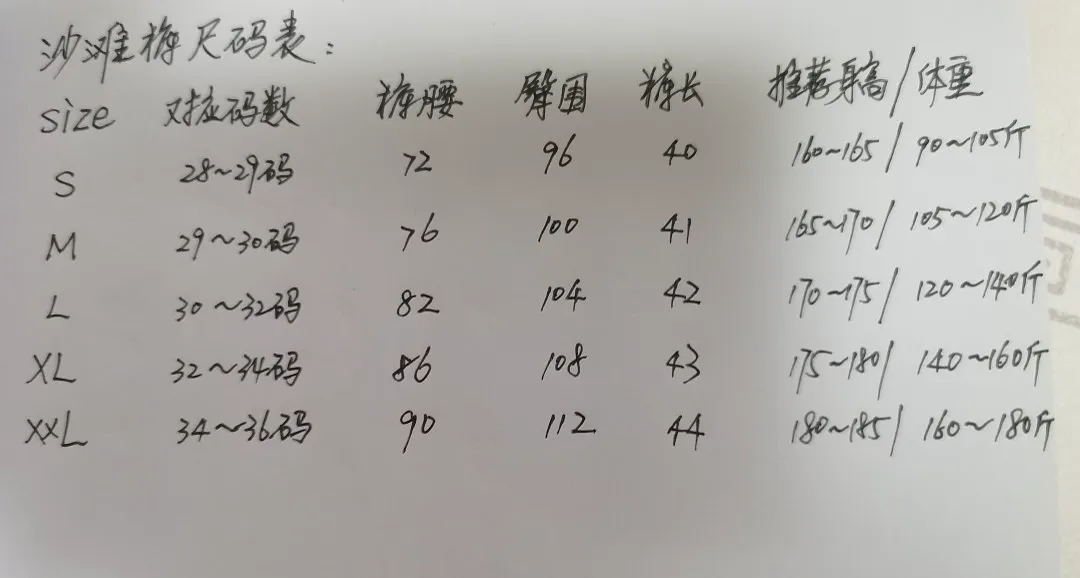 沙滩裤尺码表：
size 对应码数 裤腰 臀围 裤长 推荐身高/体重
S 28~29码 72 96 40 160~165/90~105斤
M 29~30码 76 100 41 165~170/105~120斤
L 30~32码 82 104 42 170~175/120~140斤
XL 32~34码 86 108 43 175~180/140~160斤
XXL 34~36码 90 112 44 180~185/160~180斤